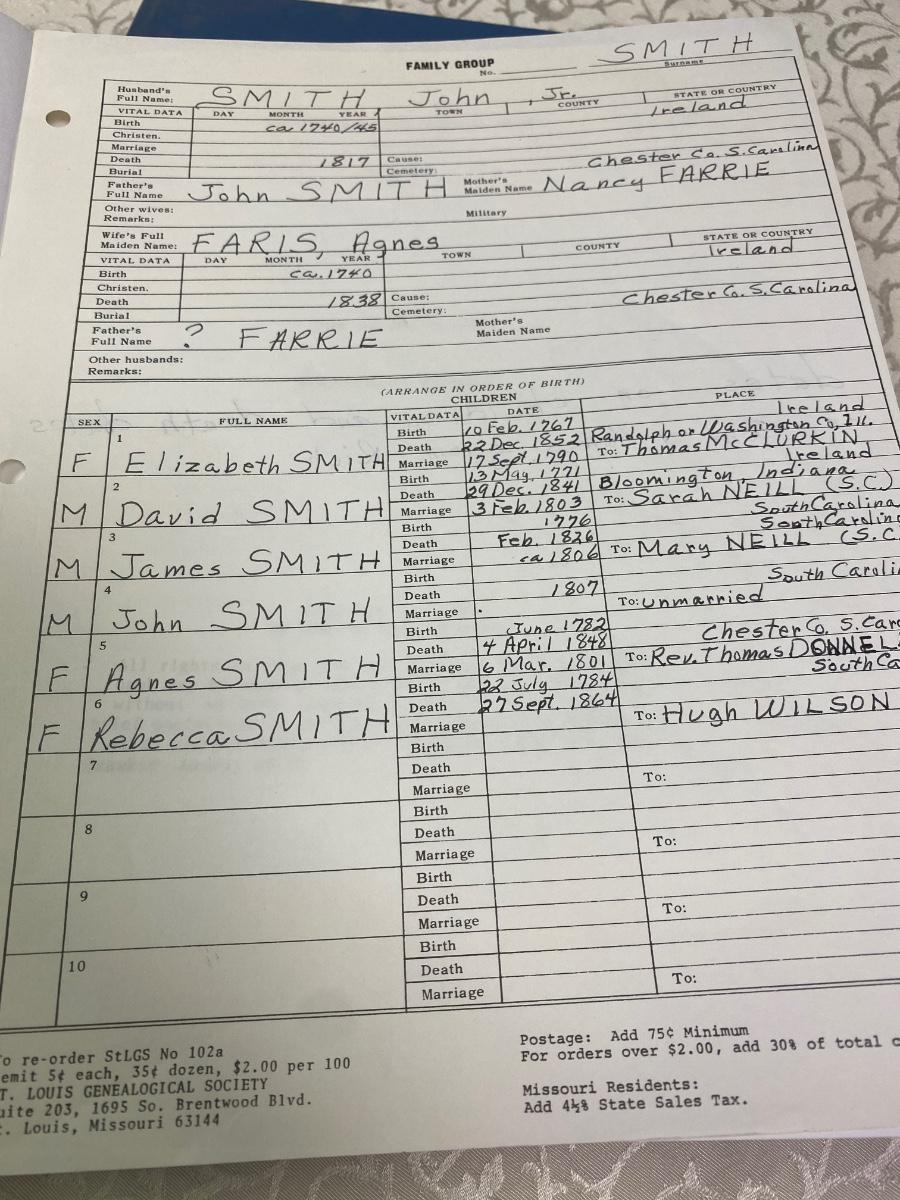 FAMILY GROUP SMITH
No. Surname
Husband's Full Name: SMITH John, Jr.
VITAL DATA DAY MONTH YEAR TOWN COUNTY STATE OR COUNTRY
Birth ca 1740/45 Ireland
Christen.
Marriage
Death 1817 Cause: Chester Co. S. Carolina
Burial Cemetery:
Father's Full Name John SMITH Mother's Maiden Name Nancy FARRIE
Other wives: Military
Remarks:
Wife's Full Maiden Name: FARIS, Agnes
VITAL DATA DAY MONTH YEAR TOWN COUNTY STATE OR COUNTRY
Birth ca. 1740 Ireland
Christen.
Death 1838 Cause: Chester Co. S. Carolina
Burial Cemetery:
Father's Full Name ? FARRIE Mother's Maiden Name
Other husbands:
Remarks:
(ARRANGE IN ORDER OF BIRTH)
CHILDREN
SEX FULL NAME VITAL DATA DATE PLACE
1 Birth 10 Feb. 1767 Ireland
Death 22 Dec. 1852 Randolph or Washington Co, Ill.
F Elizabeth SMITH Marriage 17 Sept. 1790 To: Thomas McCLURKIN
2 Birth 13 May, 1771 Ireland
Death 29 Dec. 1841 Bloomington, Indiana
M David SMITH Marriage 3 Feb. 1803 To: Sarah NEILL (S.C.)
3 Birth 1776 South Carolina
Death Feb. 1826 South Carolina
M James SMITH Marriage ca 1806 To: Mary NEILL (S.C
4 Birth
Death 1807 South Caroli
M John SMITH Marriage To: unmarried
5 Birth June 1782
Death 4 April 1848 Chester Co. S. Caro
F Agnes SMITH Marriage 6 Mar. 1801 To: Rev. Thomas DONNEL
6 Birth 22 July 1784 South Ca
Death 27 Sept. 1864
F Rebecca SMITH Marriage To: Hugh WILSON
7 Birth
Death
Marriage To:
8 Birth
Death
Marriage To:
9 Birth
Death
Marriage To:
10 Birth
Death
Marriage To:
o re-order StLGS No 102a
emit 5¢ each, 35¢ dozen, $2.00 per 100
T. LOUIS GENEALOGICAL SOCIETY
uite 203, 1695 So. Brentwood Blvd.
. Louis, Missouri 63144
Postage: Add 75¢ Minimum
For orders over $2.00, add 30% of total c
Missouri Residents:
Add 4½% State Sales Tax.